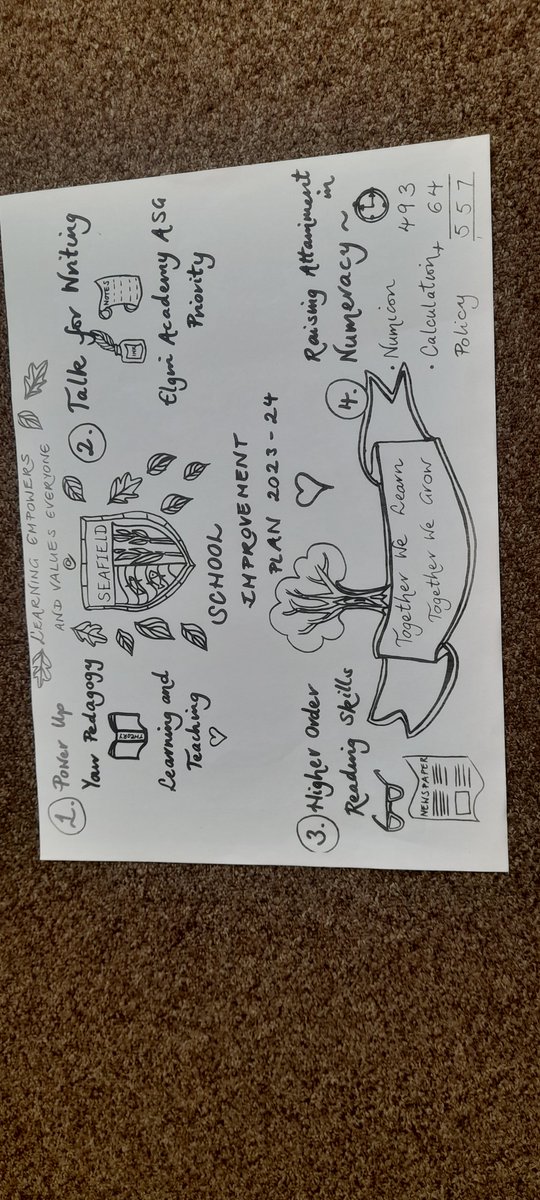 LEARNING EMPOWERS
AND VALUES EVERYONE
@
SEAFIELD
SCHOOL
IMPROVEMENT
PLAN 2023-24
1. Power Up
Your Pedagogy
THEORY
Learning and
Teaching
2. Talk for Writing
INK
NOTES
Elgin Academy ASG
Priority
3. Higher Order
Reading Skills
NEWSPAPER
4. Raising Attainment
in
Numeracy ~
• Numicon
• Calculation
Policy
493
+ 64
557
Together We Learn
Together We Grow